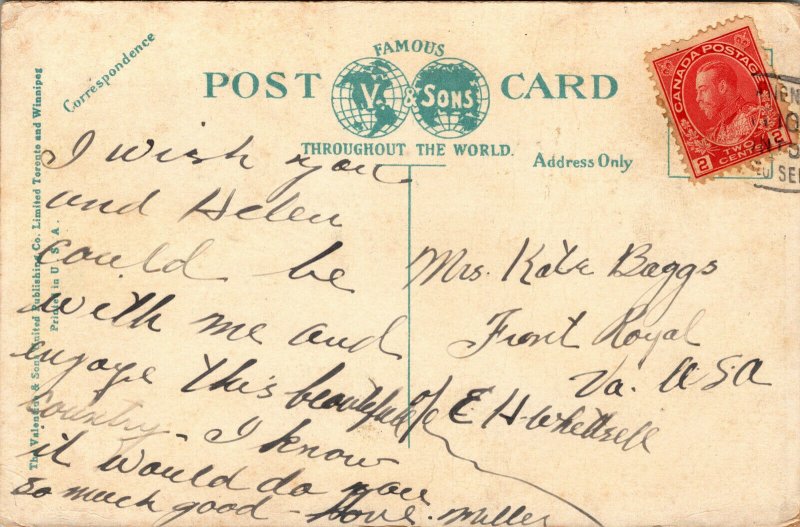 Correspondence
FAMOUS
POST CARD
V. & SONS
THROUGHOUT THE WORLD.
Address Only
CANADA POSTAGE
2 TWO CENTS 2
SE
The Valentine & Sons United Publishing Co. Limited Toronto and Winnipeg
Printed in U. S. A.
I wish you
and Helen
could be
with me and
engage this beautiful
country - I know
it would do you
so much good - Love. Miller
Mrs. Kate Baggs
Front Royal
Va. USA
c/o E H Whettzell